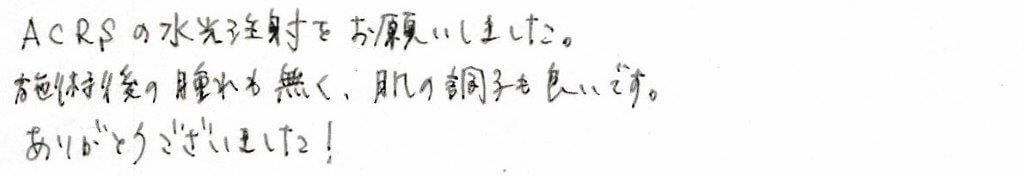 ACRSの水光注射をお願いしました。
施術後の腫れも無く、肌の調子も良いです。
ありがとうございました!